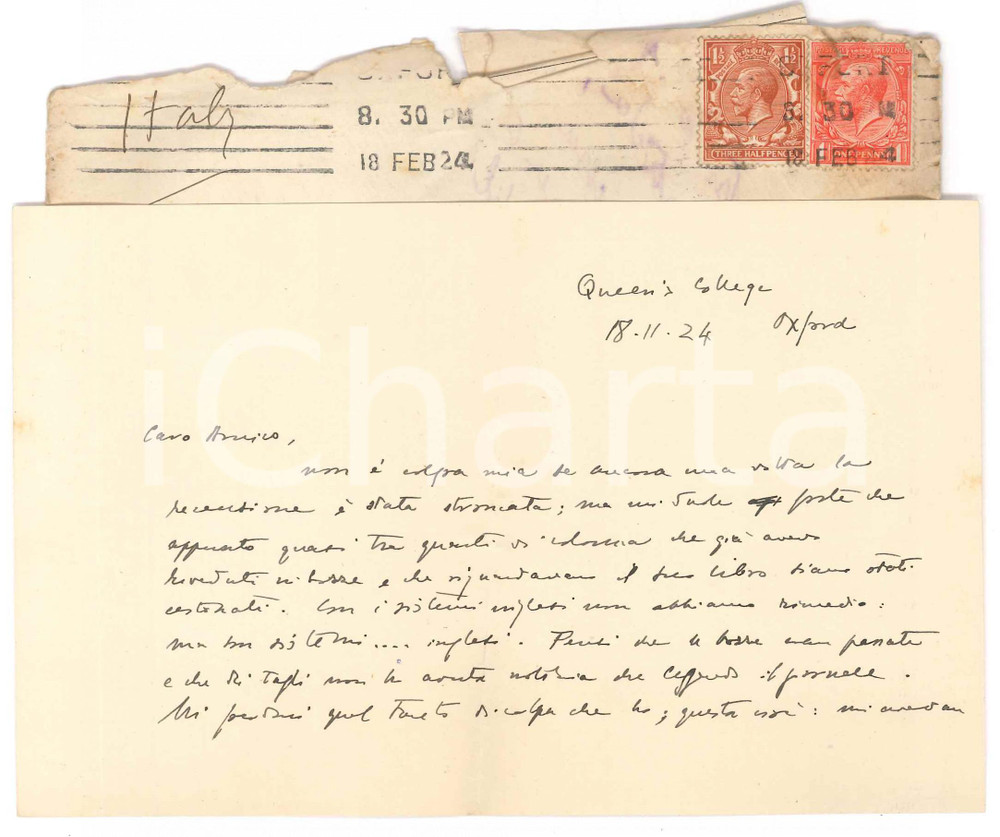 Italy
8. 30 PM
18 FEB 24
1½ 1½
THREE HALFPENCE
ONE PENNY
iCharta
Queen's College
18.II.24 Oxford
Caro Amico,
non è colpa mia se ancora una volta la
recensione è stata stroncata; ma mi duole forte che
appunto quasi tra quanti di che già avevo
riveduti in bozze e che riguardavano il suo libro siano stati
cestinati. Con i sistemi inglesi non abbiamo rimedio:
ma son sistemi.... inglesi. Pensi che le bozze eran passate
e che di tagli non ho avuta notizia che leggendo il giornale.
Mi perdoni quel tanto di colpa che ho; questa così: mi avevan